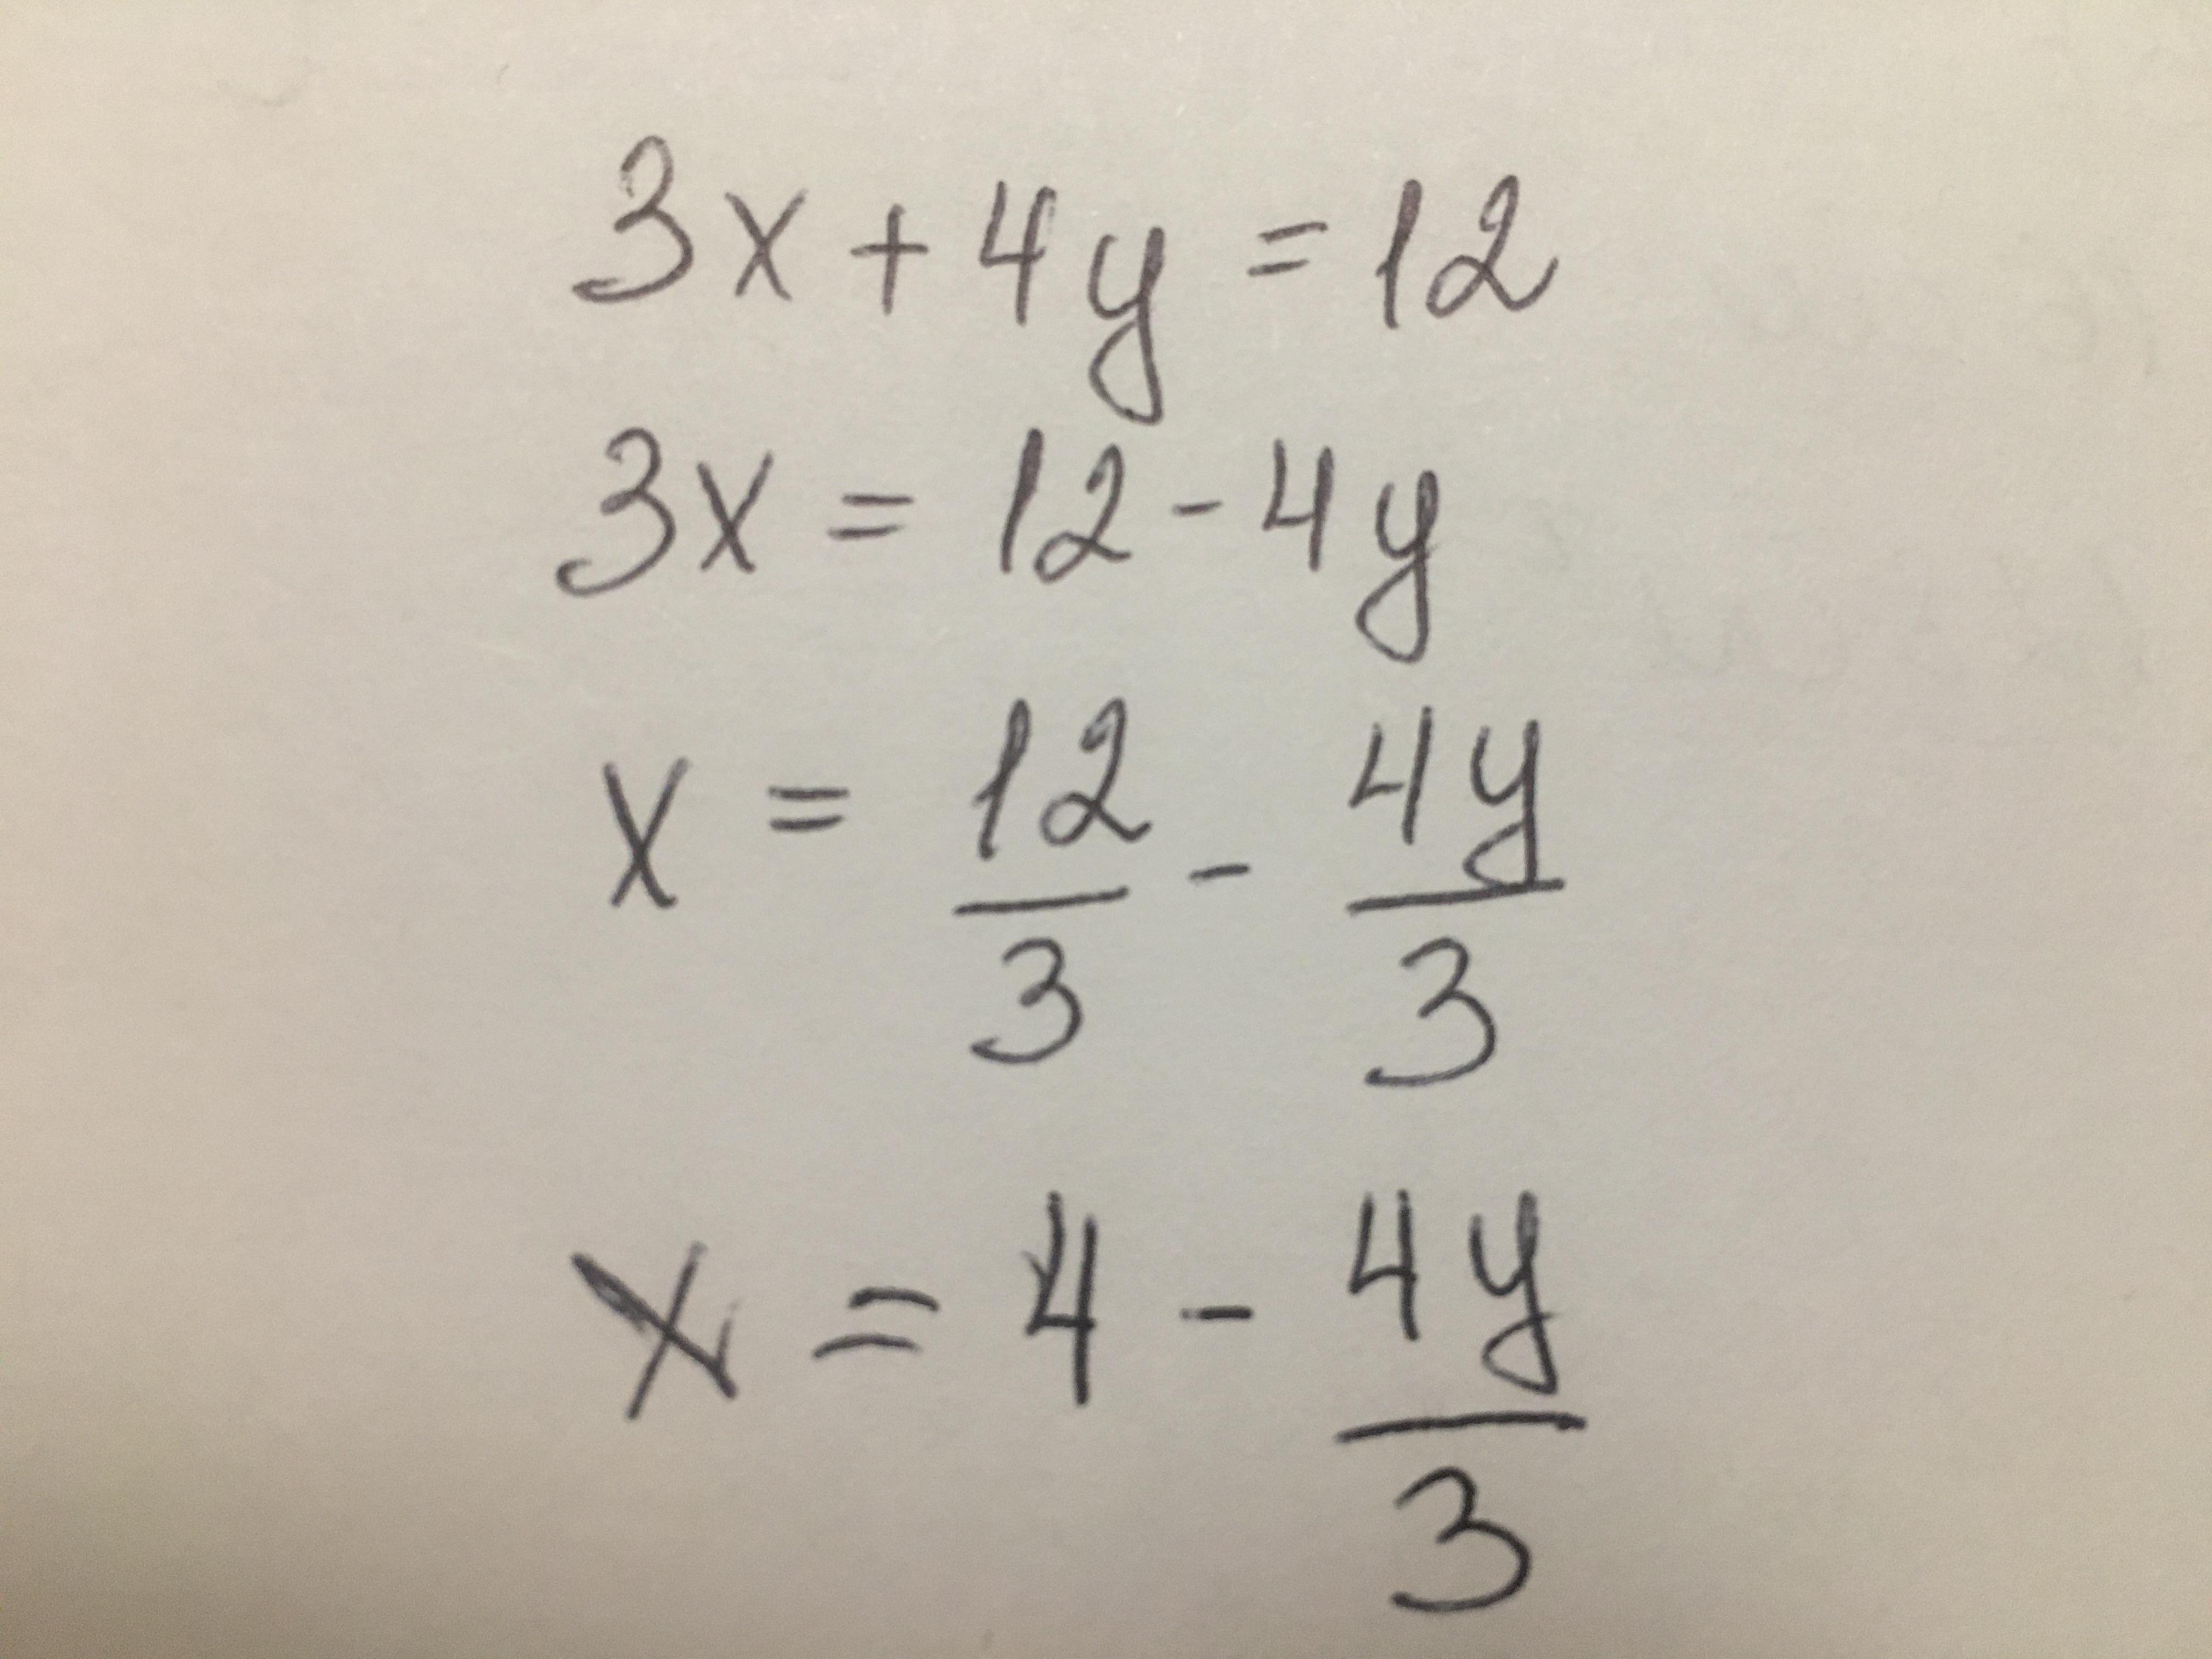 3x + 4y = 12
3x = 12 - 4y
x = 12/3 - 4y/3
x = 4 - 4y/3